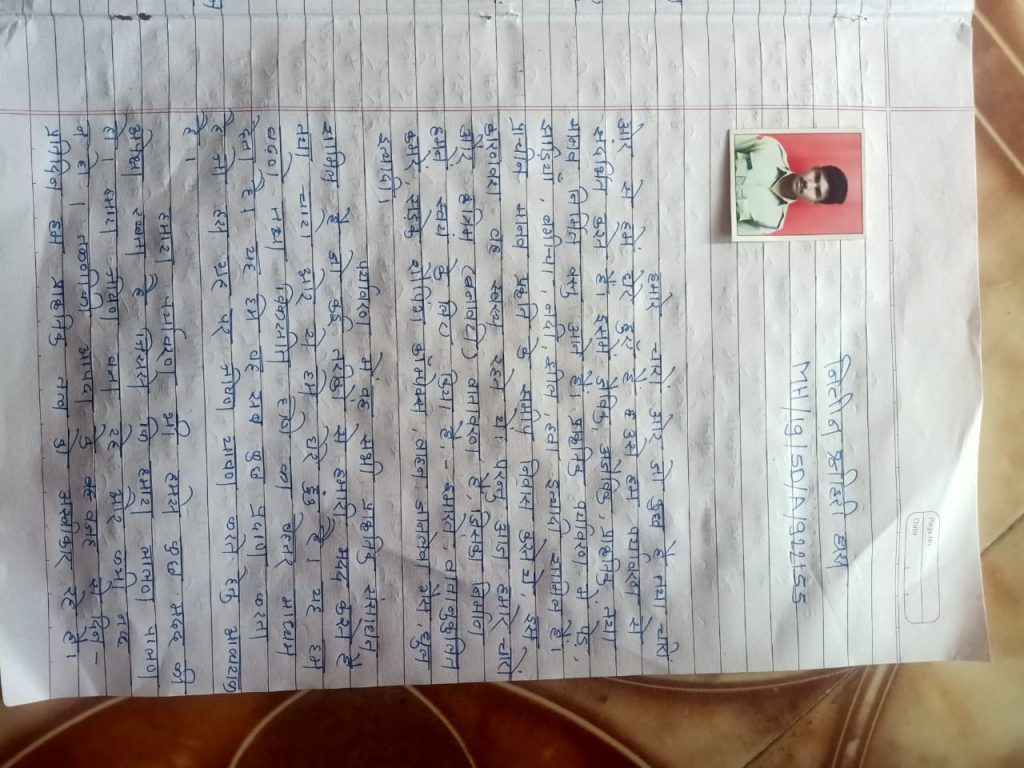 Page No.
Date
नितीन श्रीहरी दास
MH/19/SD/A/922155
हमारे चारो ओर जो कुछ है तथा चारों
ओर से हमें घेरे हुऐ है उसे हम पर्यावरण से
संदर्भित करते हैं इसमें जैविक अजैविक, प्राकृतिक, तथा
मानव निर्मित वस्तु आते हैं। प्राकृतिक पर्यावरण में पेड़,
झाड़ियाँ, बगीचा, नदी झील, हवा इत्यादि शामिल हैं।
प्राचीन मानव प्रकृति के समीप निवास करते थे, इस
कारणवश वह स्वस्थ रहते थे। परन्तु आज हमारे चारो
ओर कृत्रिम (बनावटी) वातावरण है, जिसका निर्माण
हमने स्वयं के लिए किया है, - इमारते, वातानुकुलित
कमरे, सड़के शॉपिंग कॉम्प्लेक्स, वाहन डामलेस गैस, धुल
इत्यादी।
पर्यावरण में वह सभी प्राकृतिक संसाधन
शामिल हैं जो कई तरीको से हमारी मदद करते हैं
तथा चारो ओर से हमें घेरे हुए है। यह हमे
बढ़ने तथा विकसीत होने का बेहतर माध्यम
देता है। यह हमे वह सब कुछ प्रदान करता
है जो इस ग्रह पर जीवन यापन करने हेतु आवश्यक
है।
हमारा पर्यावरण भी हमसे कुछ मदद की
अपेक्षा रखता है जिससे की हमारा लालन पालन
हो। हमारा जीवन बना रहे और कभी नष्ट
न हो। तकनीकी आपदा के वजह से दिन -
प्रतिदिन हम प्राकृतिक तत्व को अस्वीकार रहे है।